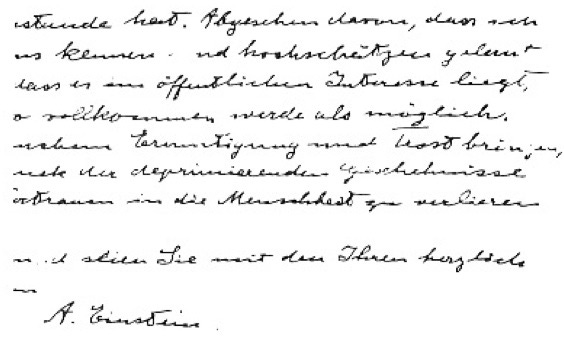 stunde hat. Abgesehen davon, dass ich
kennen nd hochschätzen gelernt
dass es im öffentlichen Interesse liegt,
o vollkommen werde als möglich.
Ermutigung und Trost bringen,
der deprimierenden Geschehnisse
trauen in die Menschheit zu verlieren
seien Sie mit den Ihren herzlich
A. Einstein.